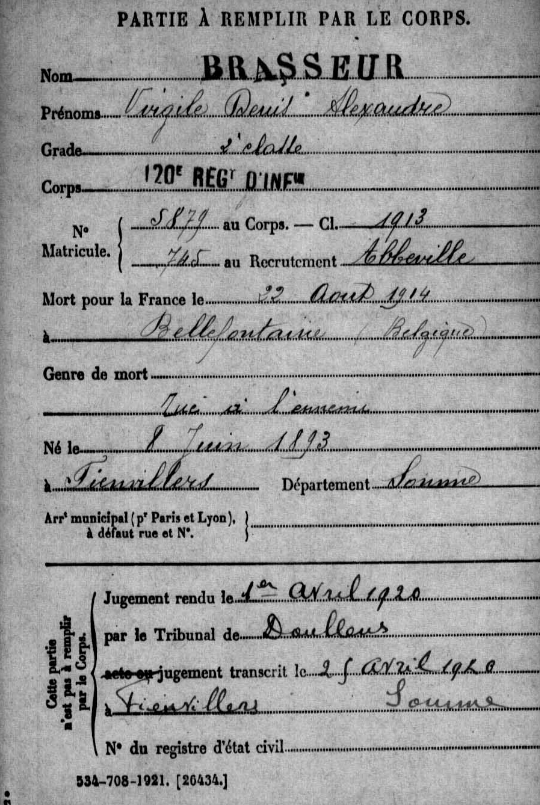 PARTIE À REMPLIR PAR LE CORPS.
Nom BRASSEUR
Prénoms Virgile Denis Alexandre
Grade 2e classe
Corps 120E REGt D'INFie
No Matricule. 5879 au Corps. — Cl. 1913
745 au Recrutement Abbeville
Mort pour la France le 22 Aout 1914
à Bellefontaine (Belgique)
Genre de mort
Tué à l'ennemi
Né le 8 Juin 1893
à Fienvillers Département Somme
Arrt municipal (pr Paris et Lyon),
à défaut rue et No.
Cette partie
n'est pas à remplir
par le Corps.
Jugement rendu le 1er Avril 1920
par le Tribunal de Doullens
acte ou jugement transcrit le 25 Avril 1920
à Fienvillers Somme
No du registre d'état civil
534-708-1921. [26434.]